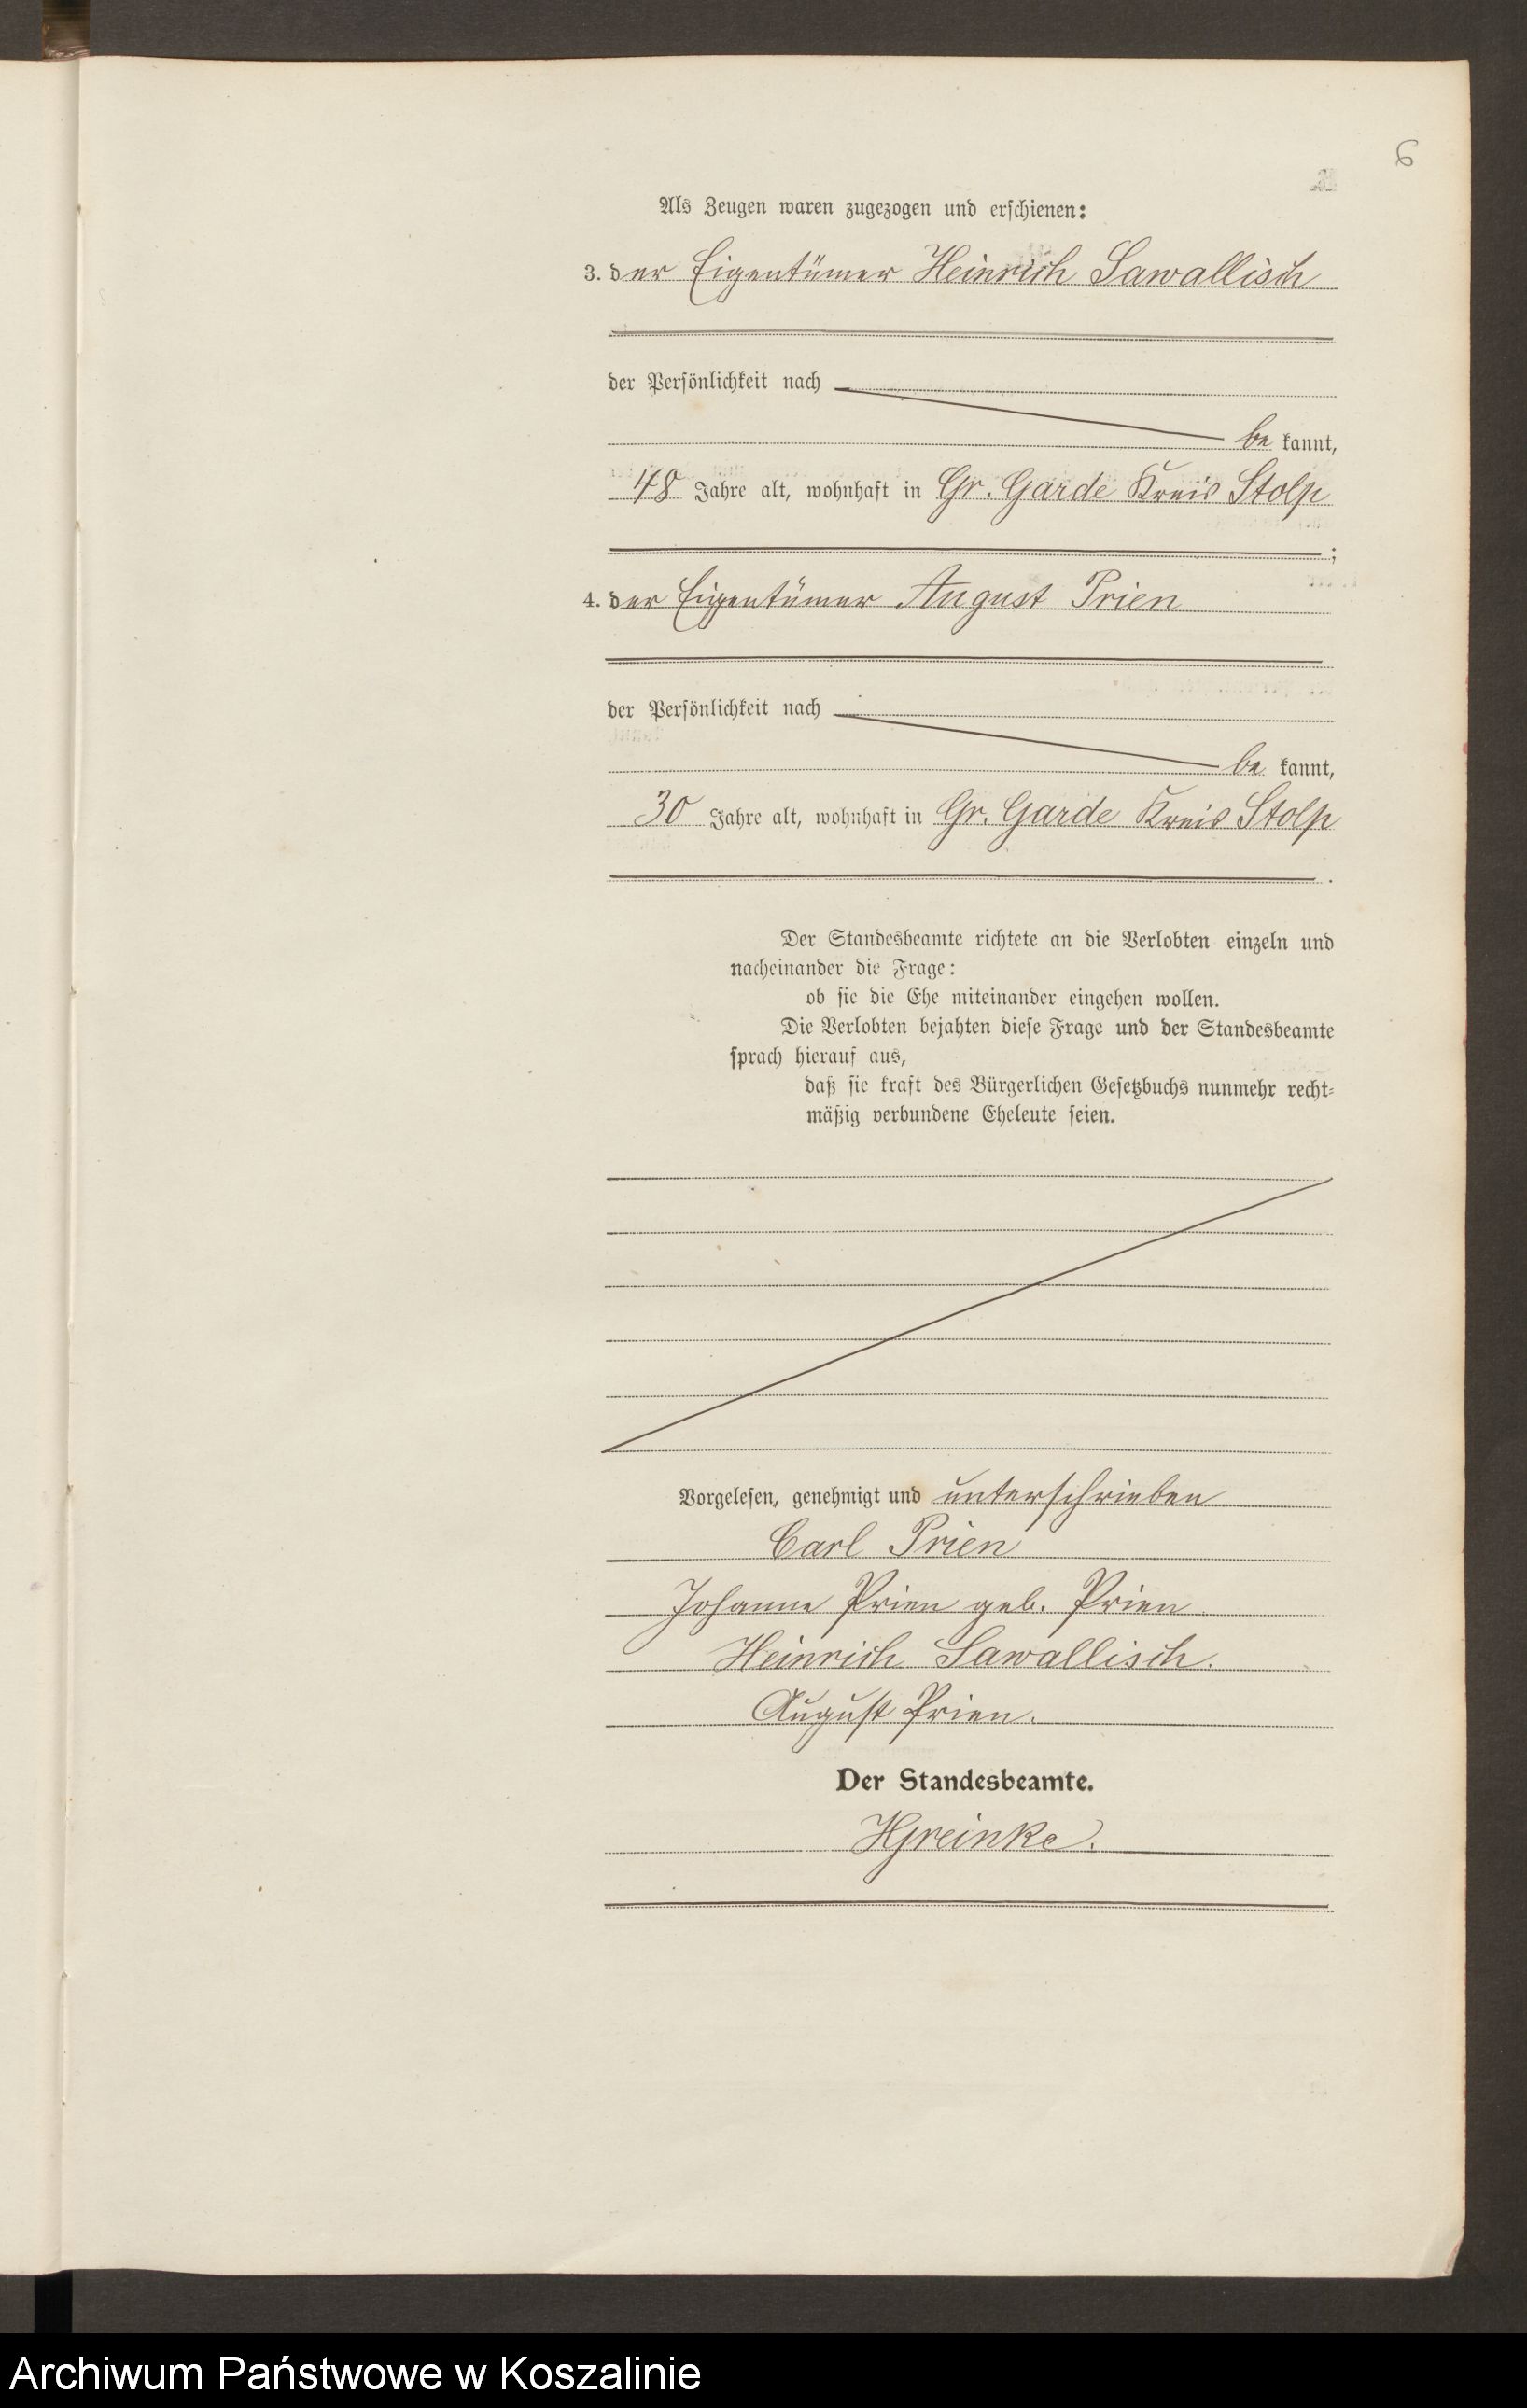 6
Als Zeugen waren zugezogen und erschienen:
3. der Eigentümer Heinrich Sawallisch
der Persönlichkeit nach
be kannt,
48 Jahre alt, wohnhaft in Gr. Garde Kreis Stolp
;
4. der Eigentümer August Prien
der Persönlichkeit nach
be kannt,
30 Jahre alt, wohnhaft in Gr. Garde Kreis Stolp
.
Der Standesbeamte richtete an die Verlobten einzeln und
nacheinander die Frage:
ob sie die Ehe miteinander eingehen wollen.
Die Verlobten bejahten diese Frage und der Standesbeamte
sprach hierauf aus,
daß sie kraft des Bürgerlichen Gesetzbuchs nunmehr recht-
mäßig verbundene Eheleute seien.
Vorgelesen, genehmigt und unterschrieben
Carl Prien
Johanne Prien geb. Prien
Heinrich Sawallisch.
August Prien.
Der Standesbeamte.
HGreinke.
Archiwum Państwowe w Koszalinie